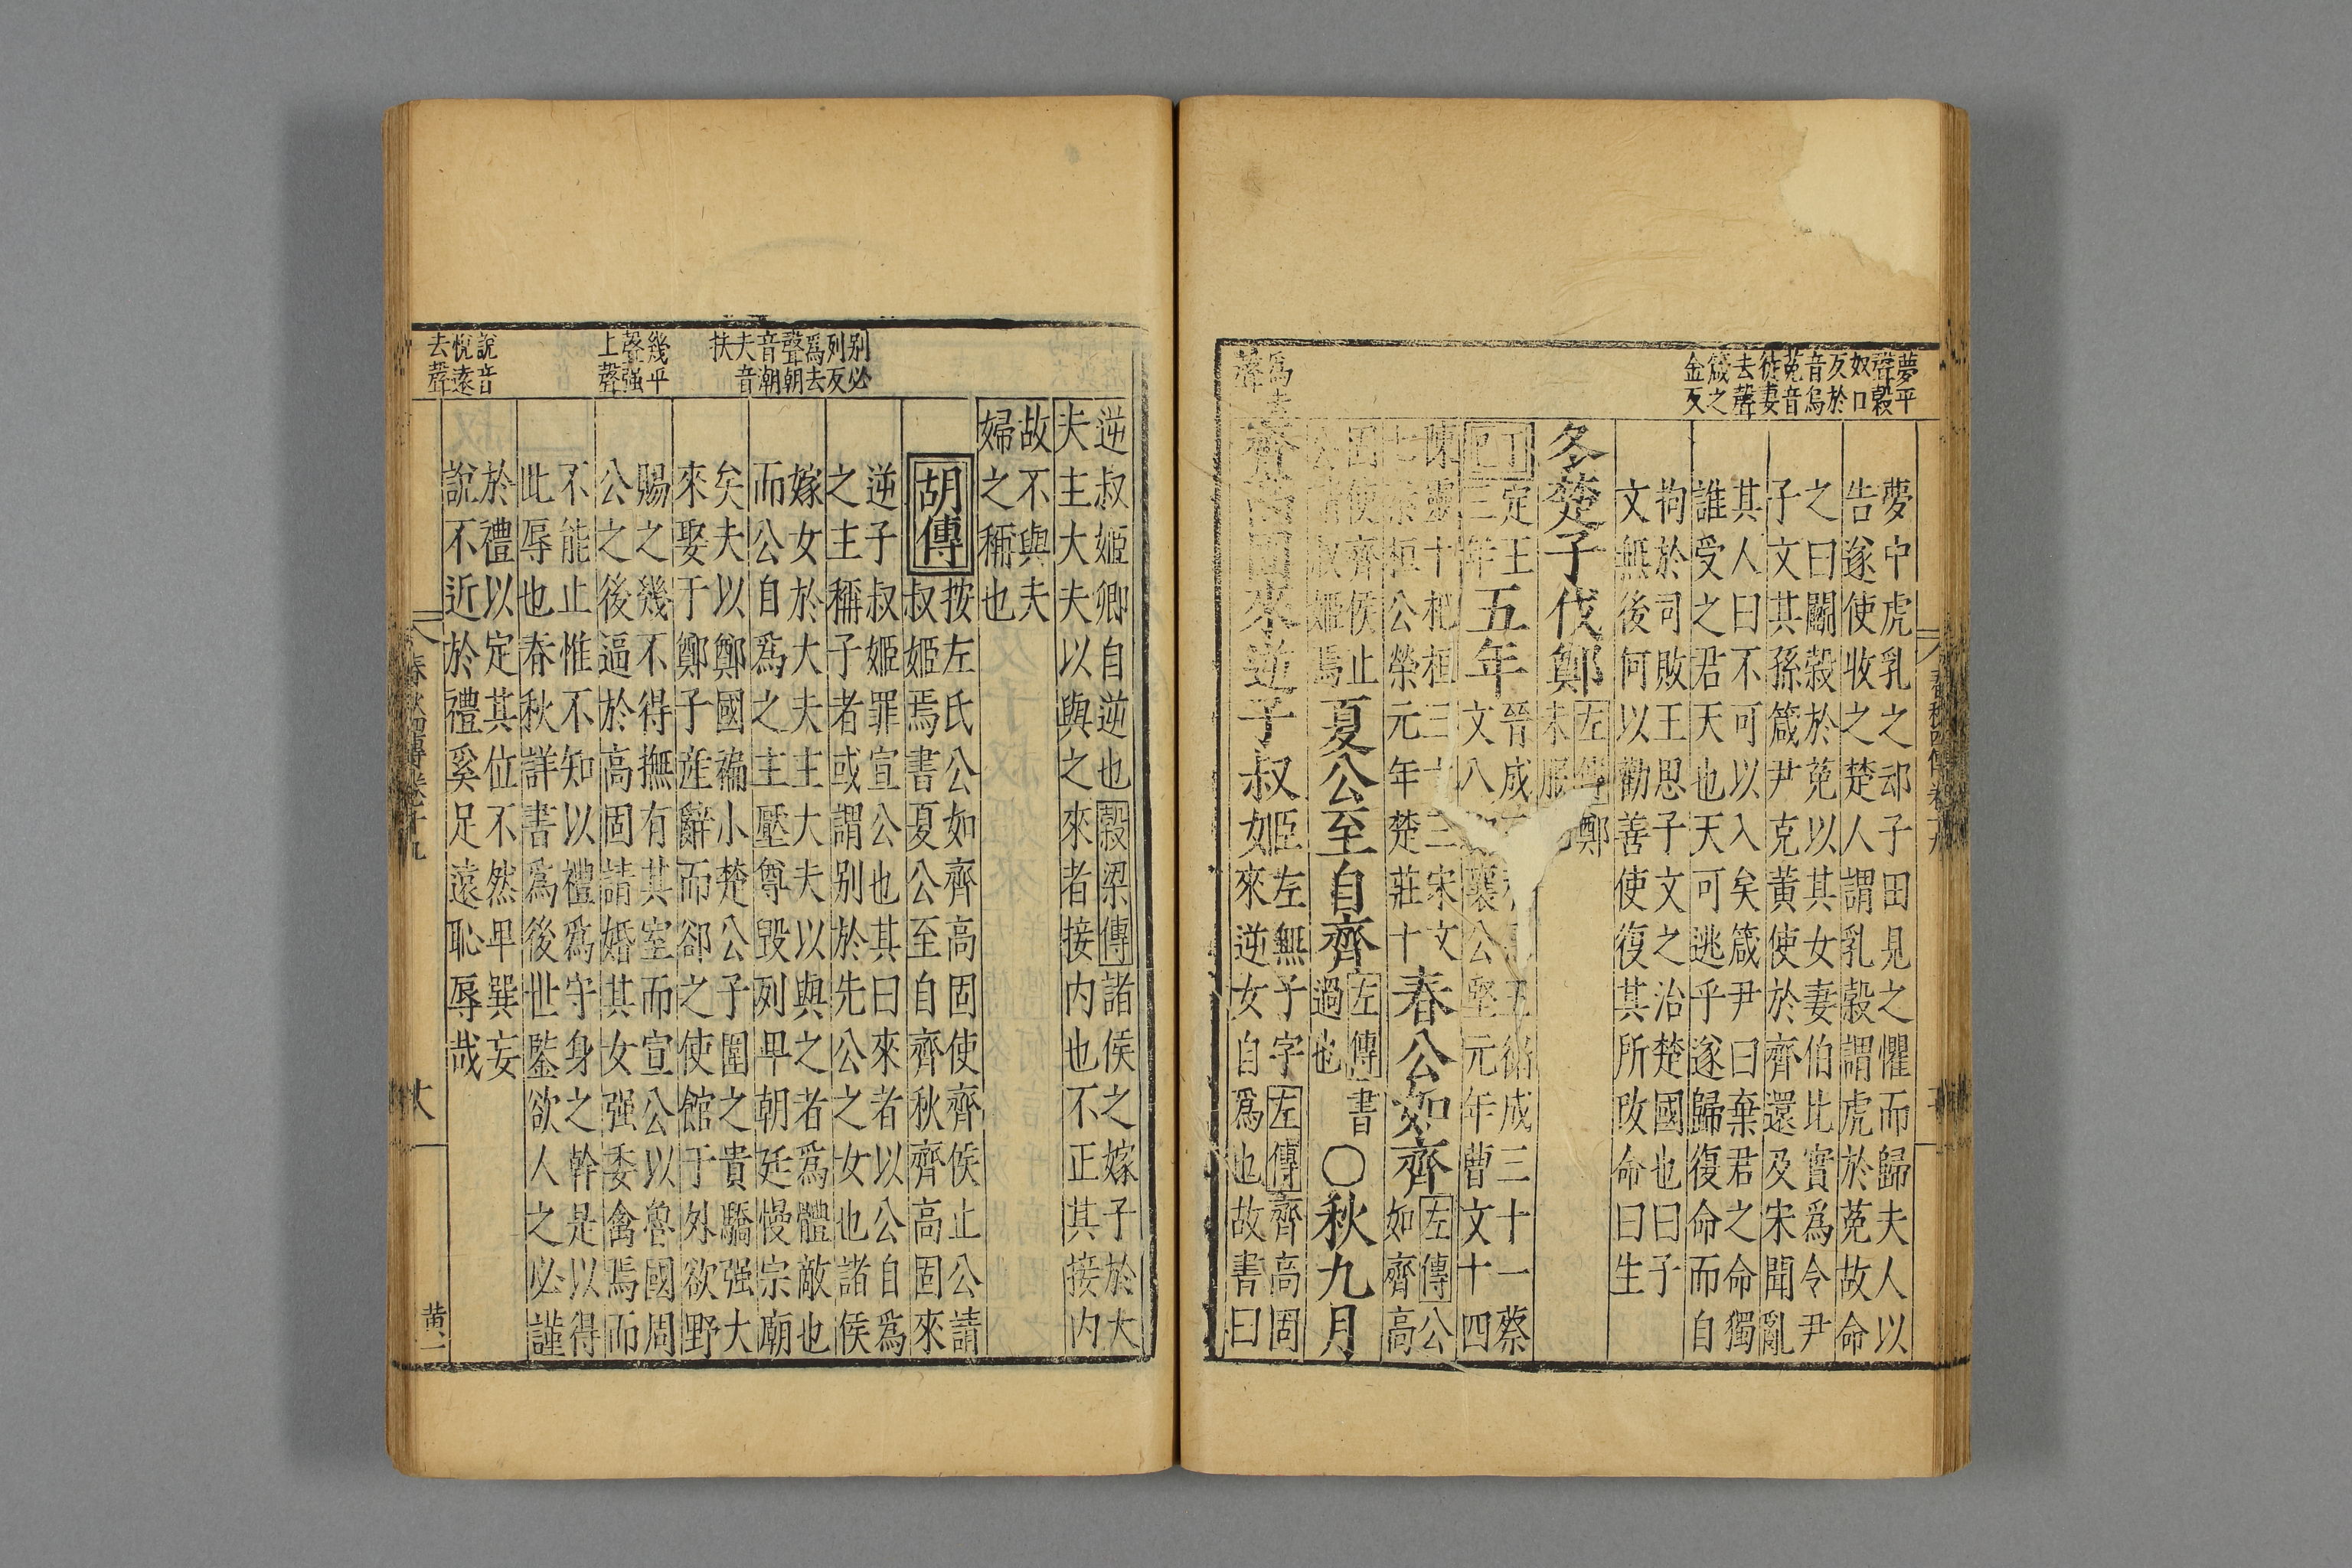 夢平
聲穀
奴口
反於
音烏
菟音
徒妻
去聲
箴之
金反
夢中虎乳之䢴子田見之懼而歸夫人以
告遂使收之楚人謂乳穀謂虎於菟故命
之曰鬭穀於菟以其女妻伯比實爲令尹
子文其孫箴尹克黄使於齊還及宋聞亂
其人曰不可以入矣箴尹曰棄君之命獨
誰受之君天也天可逃乎遂歸復命而自
拘於司敗王思子文之治楚國也曰子
文無後何以勸善使復其所改命曰生
冬楚子伐鄭
左傳鄭
未服
丁
巳
定王
三年
五年
晉成三十一蔡
文八襄公堅元年曹文十四
陳靈十杞桓三十三宋文
七秦桓公榮元年楚莊十
春公如齊
左傳公
如齊高
固使齊侯止
公請叔姬焉
夏公至自齊
左傳書
過也
○秋九月
爲去
聲
齊高固來逆子叔姬
左無子字左傳齊高固
來逆女自爲也故書曰
春秋四傳卷十九
逆叔姬卿自逆也穀梁傳諸侯之嫁子於大
夫主大夫以與之來者接内也不正其接内
故不與夫
婦之稱也
胡傳
按左氏公如齊高固使齊侯止公請
叔姬焉書夏公至自齊秋齊高固來
别必
列反
爲去
聲朝
音潮
夫音
扶
逆子叔姬罪宣公也其曰來者以公自爲
之主稱子者或謂别於先公之女也諸侯
嫁女於大夫主大夫以與之者爲體敵也
而公自爲之主壓尊毁列卑朝廷慢宗廟
矣夫以鄭國褊小楚公子圍之貴驕强大
來娶于鄭子産辭而卻之使館于外欲野
幾平
聲强
上聲
賜之幾不得撫有其室而宣公以魯國周
公之後逼於高固請婚其女强委禽焉而
不能止惟不知以禮爲守身之幹是以得
此辱也春秋詳書爲後世鑒欲人之必謹
說音
悅遠
去聲
於禮以定其位不然卑巽妄
說不近於禮奚足遠恥辱哉
春秋四傳卷十九
黄一